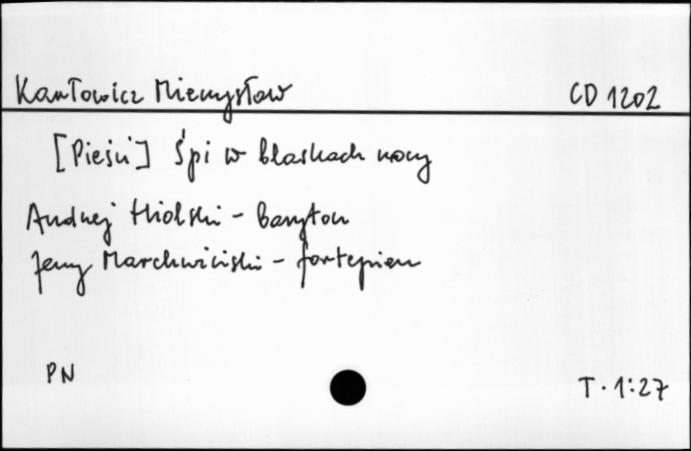 Karłowicz Mieczysław CD 1202
[Pieśń] Śpi w blaskach nocy
Andrzej Hiolski - baryton
Jerzy Marchwiński - fortepian
PN T. 1:27